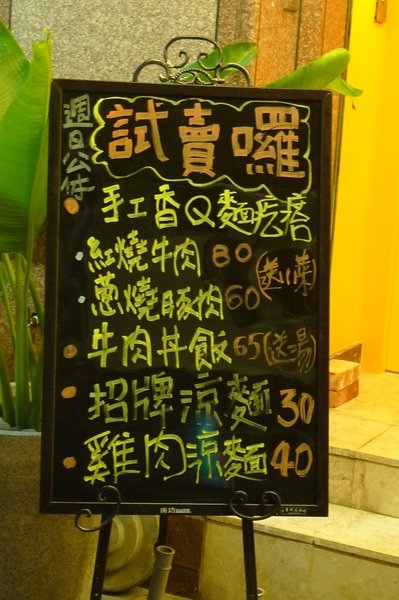 週日公休
試賣囉
手工香Q麵疙瘩
紅燒牛肉 80 (送小菜)
蔥燒豚肉 60
牛肉丼飯 65 (送湯)
招牌涼麵 30
雞肉涼麵 40